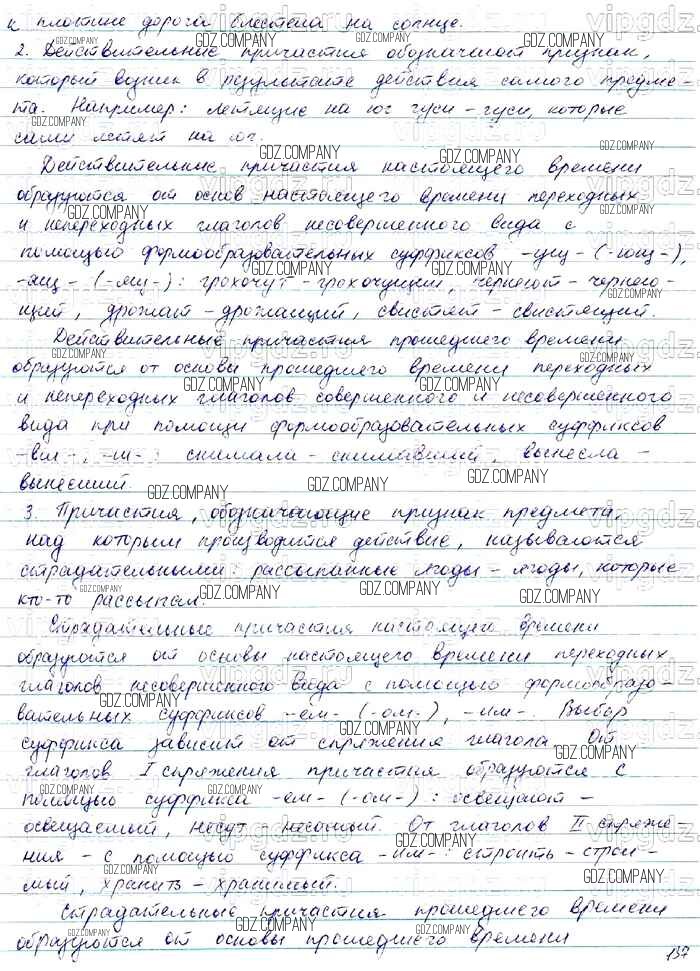 к плотине дорога блестела на солнце.
2. Действительные причастия обозначают признак,
который возник в результате действия самого предме-
та. Например: летящие на юг гуси – гуси, которые
сами летят на юг.
Действительные причастия настоящего времени
образуются от основ настоящего времени переходных
и непереходных глаголов несовершенного вида с
помощью формообразовательных суффиксов -ущ- (-ющ-),
-ащ- (-ящ-): грохочут – грохочущий, чернеют – чернею-
щий, дрожат – дрожащий, свистят – свистящий.
Действительные причастия прошедшего времени
образуются от основы прошедшего времени переходных
и непереходных глаголов совершенного и несовершенного
вида при помощи формообразовательных суффиксов
-вш-, -ш-: снимали – снимавший, вынесла –
вынесший.
3. Причастия, обозначающие признак предмета,
над которым производится действие, называются
страдательными: рассыпанные ягоды – ягоды, которые
кто-то рассыпал.
Страдательные причастия настоящего времени
образуются от основы настоящего времени переходных
глаголов несовершенного вида с помощью формообразо-
вательных суффиксов -ем- (-ом-), -им-. Выбор
суффикса зависит от спряжения глагола. От
глаголов I спряжения причастия образуются с
помощью суффикса -ем- (-ом-): освещают –
освещаемый, несут – несомый. От глаголов II спряже-
ния – с помощью суффикса -им-: строить – строи-
мый, хранить – хранимый.
Страдательные причастия прошедшего времени
образуются от основы прошедшего времени
137